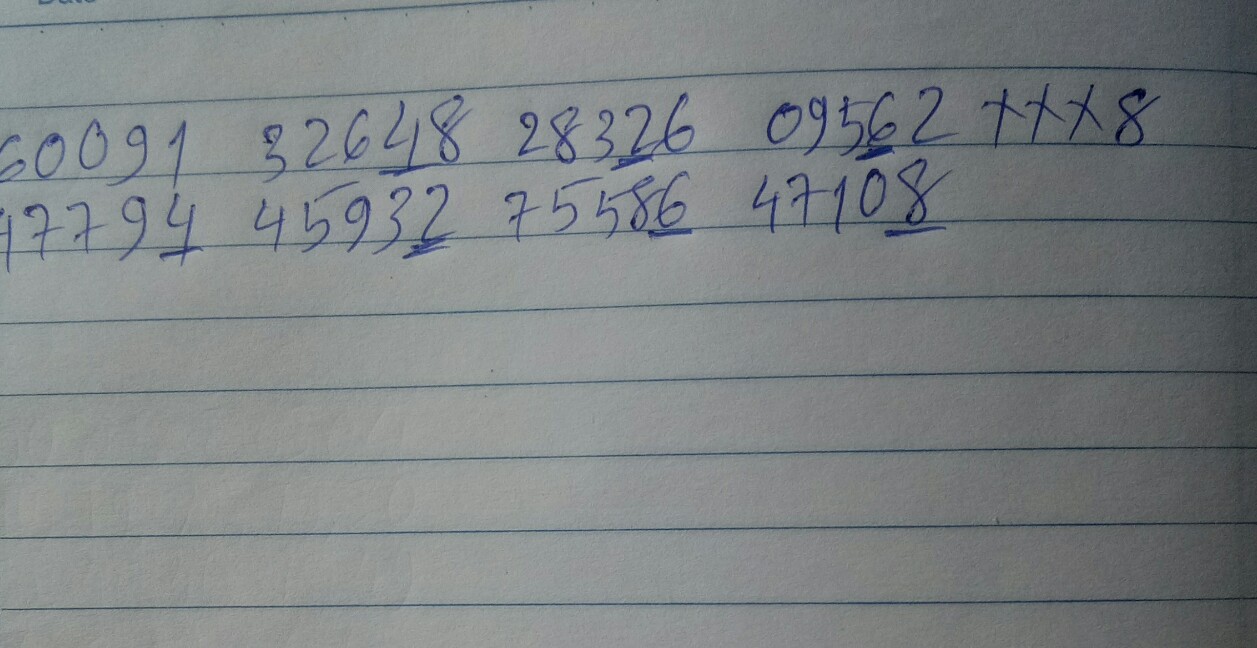 60091 32648 28326 09562 xxx8
17794 45932 75586 47108